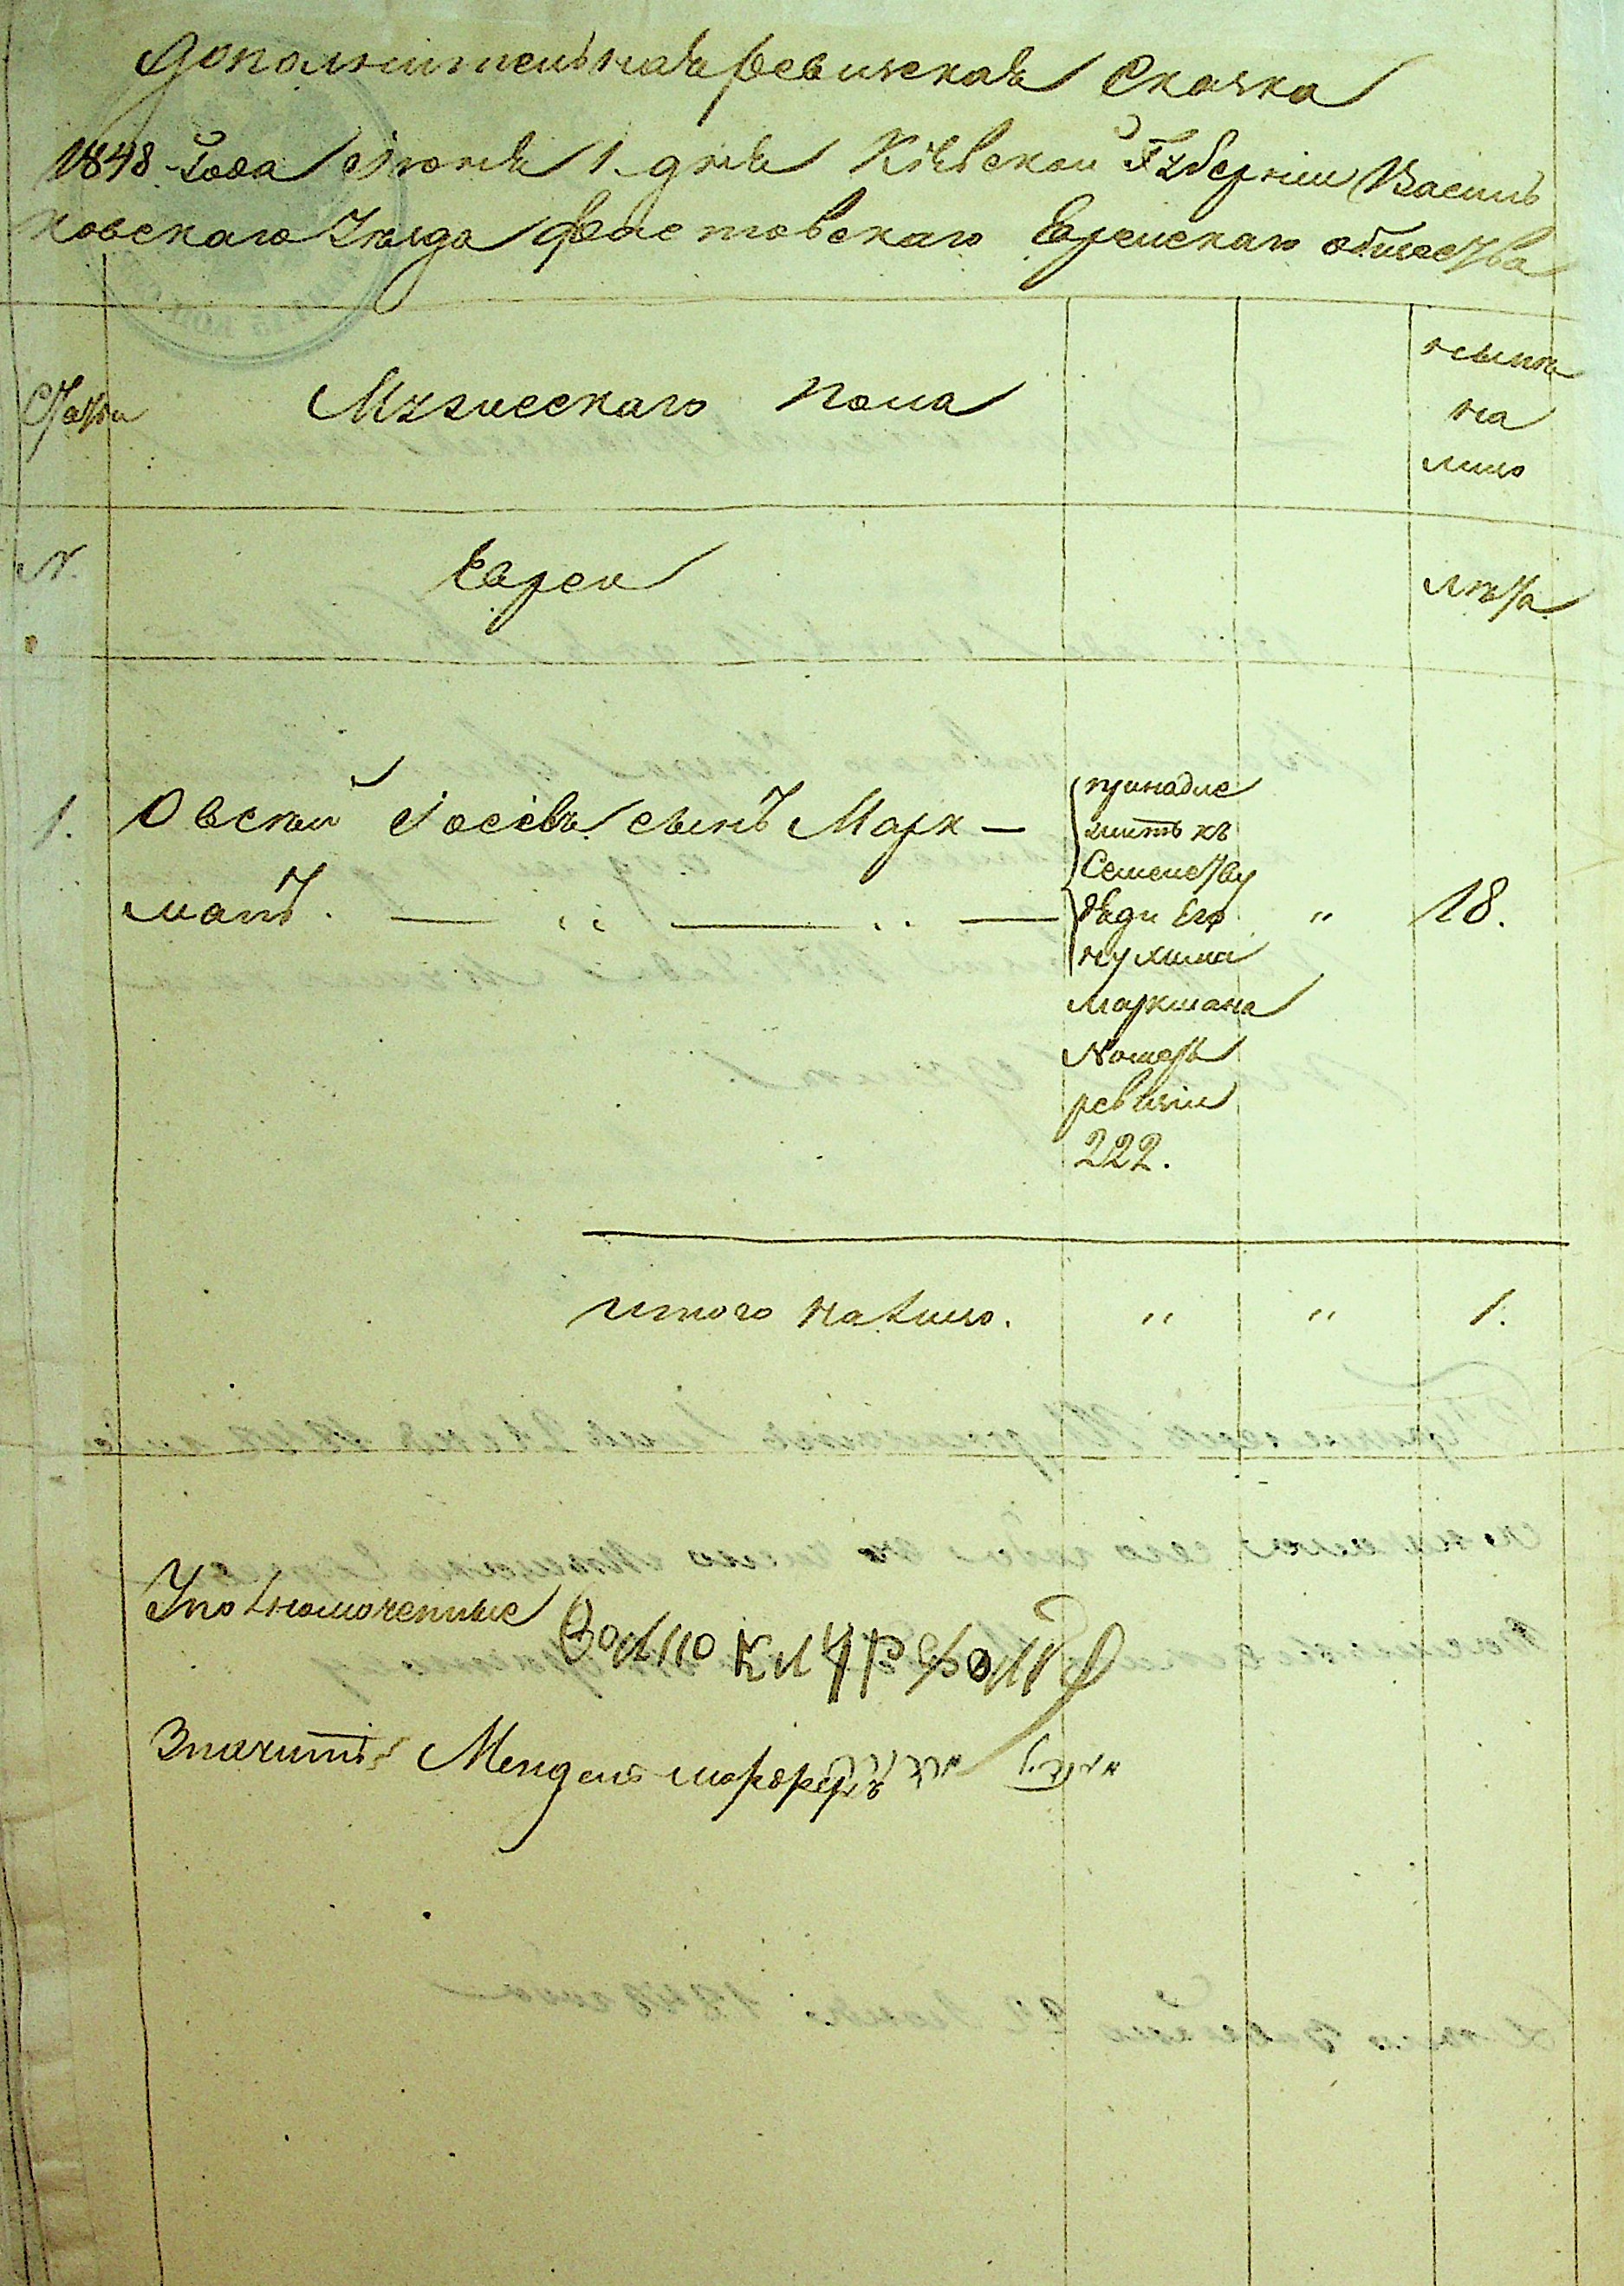 Дополнительная ревизская сказка
1848 года Июня 1 дня Кіевской Губерніи Василь
ковскаго Уезда Фастовскаго Еврейскаго общества
Статьи
Мужескаго пола
ныне
на
лицо
N.
Евреи
лета.
1.
Овсей Іосевъ сынъ Марк-
манъ.
принадле
житъ къ
Семейству
дяди Его
Нухима
Маркмана
Номеръ
ревизіи
222.
"
18.
итого налицо.
"
"
1.
Уполномоченные
Значитъ: Мендель